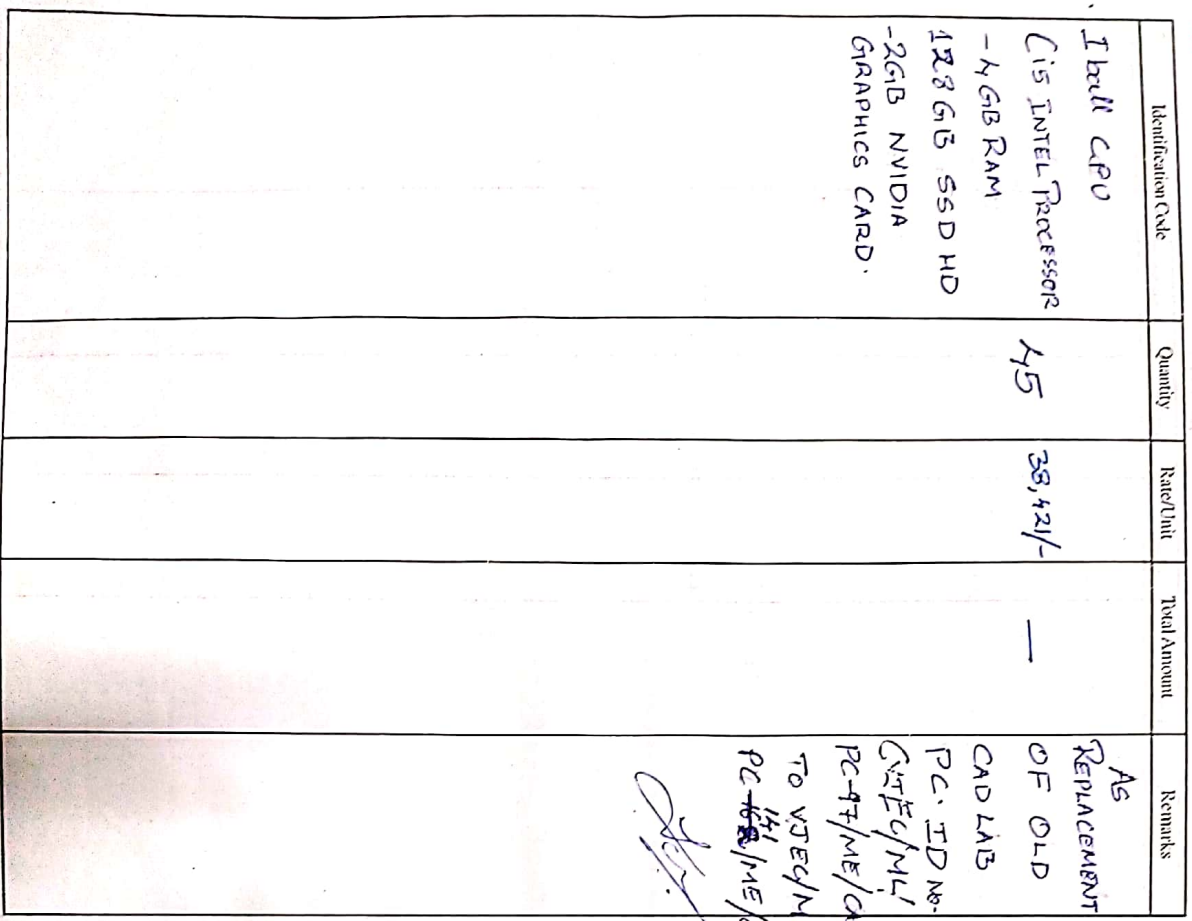 Identification Code
Quantity
Rate/Unit
Total Amount
Remarks
I ball CPU
(i5 INTEL PROCESSOR
-4GB RAM
128GB SSD HD
-2GB NVIDIA
GRAPHICS CARD.
45
38,421/-
—
AS
REPLACEMENT
OF OLD
CAD LAB
PC. ID No.
(VJEC/ML/
PC-97/ME/CA
TO VJEC/M
141
PC-168/ME/